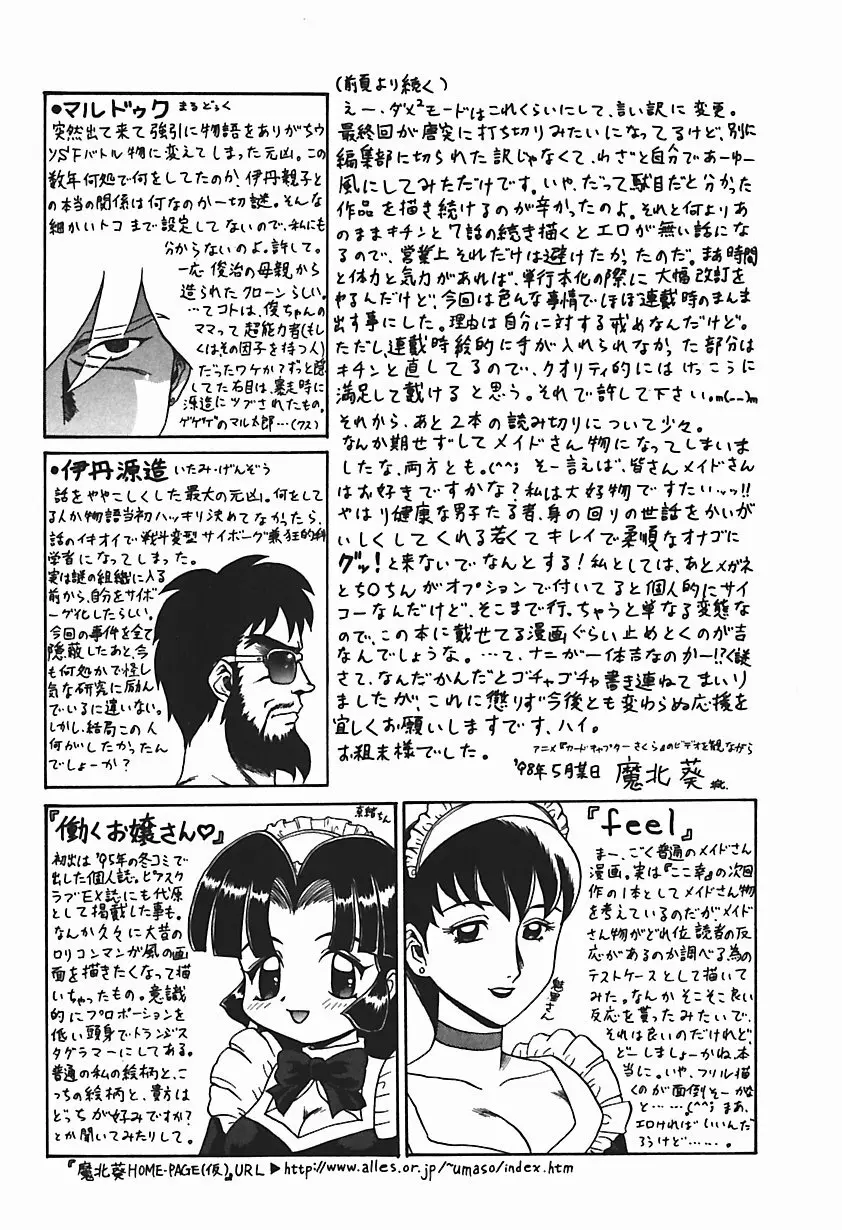 (前頁より続く)
えー、ダメ²モードはこれくらいにして、言い訳に変更。
最終回が唐突に打ち切りみたいになってるけど、別に
編集部に切られた訳じゃなくて、わざと自分であーゆー
風にしてみただけです。いや、だって駄目だと分かった
作品を描き続けるのが辛かったのよ。それと何よりあ
のままキチンと7話の続き描くとエロが無い話にな
るので、営業上それだけは避けたかったのだ。まあ時間
と体力と気力があれば、単行本化の際に大幅改訂を
やるんだけど、今回は色んな事情でほぼ連載時のまんま
出す事にした。理由は自分に対する戒めなんだけど。
ただし、連載時絵的に手が入れられなかった部分は
キチンと直してるので、クオリティ的にはけっこうに
満足して戴けると思う。それで許して下さい。m(__)m
それから、あと2本の読み切りについて少々。
なんか期せずしてメイドさん物になってしまいま
したな、両方とも。(^^; そー言えば、皆さんメイドさん
はお好きですかな?私は大好物ですたいッッ!!
やはり健康な男子たる者、身の回りの世話をかいが
いしくしてくれる若くてキレイで柔順なオナゴに
グッ!と来ないでなんとする!私としては、あとメガネ
とち○ちんがオプションで付いてると個人的にサイ
コーなんだけど、そこまで行っちゃうと単なる変態な
ので、この本に載せてる漫画ぐらい止めとくのが吉
なんでしょうな。…て、ナニが一体吉なのかー!?
さて、なんだかんだとゴチャゴチャ書き連ねてまいり
ましたが、これに懲りず今後とも変わらぬ応援を
宜しくお願いしますです、ハイ。
お粗末様でした。
アニメ『カードキャプターさくら』のビデオを観ながら
'98年5月某日 魔北葵
●マルドゥク まるどぅく
突然出て来て強引に物語をありがちウ
ソSFバトル物に変えてしまった元凶。この
数年何処で何をしてたのか、伊丹親子と
の本当の関係は何なのか一切謎。そんな
細かいトコまで設定してないので、私にも
分からないのよ。許して。
一応俊治の母親から
造られたクローンらしい。
…てコトは、俊ちゃんの
ママって超能力者(もし
くはその因子を持つ人)
だったワケか?ずっと隠
してた右目は、暴走時に
源造にツブされたもの。
ゲゲゲのマル太郎…(クス)
●伊丹源造 いたみ・げんぞう
話をややこしくした最大の元凶。何をして
る人か物語当初ハッキリ決めてなかったら、
話のイキオイで戦斗変型サイボーグ兼狂的科
学者になってしまった。
実は謎の組織に入る
前から、自分をサイボ
ーグ化したらしい。
今回の事件を全て
隠蔽したあと、今
も何処かで怪し
気な研究に励ん
でいるに違いない。
しかし、結局この人
何がしたかったん
でしょーか?
『働くお嬢さん♡』
奈緒ちん
初出は'95年の冬コミで
出した個人誌。ピアスク
ラブEX誌にも代原
として掲載した事も。
なんか久々に大昔の
ロリコンマンガ風の画
面を描きたくなって描
いちゃったもの。意識
的にプロポーションを
低い頭身でトランジス
タグラマーにしてある。
普通の私の絵柄と、こ
っちの絵柄と、貴方は
どっちが好みですか?
とか聞いてみたりして。
『feel』
まー、ごく普通のメイドさん
漫画。実は『ここ幸』の次回
作の1本としてメイドさん物
を考えているのだが、メイド
さん物がどれ位読者の反
応があるのか調べる為の
テストケースとして描いて
みた。なんかそこそこ良い
反応を貰ったみたいで、
それは良いのだけれど、
どーしましょーかね、本
当に。いや、フリル描
くのが面倒そーかな
と……(^^; まあ、
エロければいいんだ
ろうけど……。
『魔北葵HOME-PAGE(仮)』URL▶http://www.alles.or.jp/~umaso/index.htm